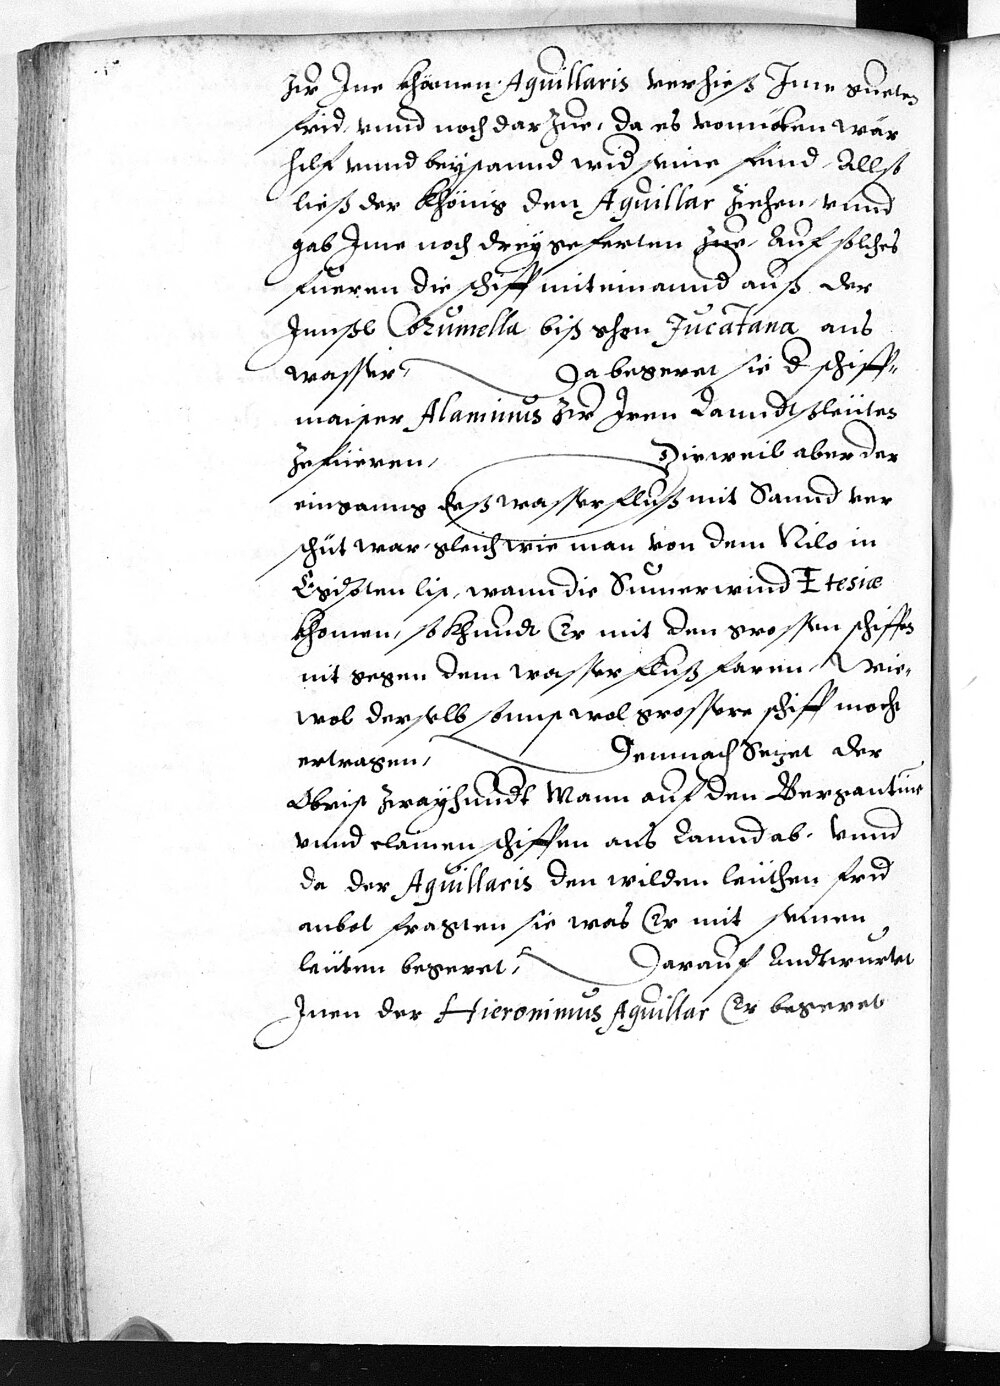 Zir Ine khämen. Aquillaris verhieß Ime gueten
frid, vnnd noch dar Zue, da es vonnöten wär
hilf vnnd beystannd wid seine feind, Allso
ließ der Khönig den Aquillar ziehen, vnnd
gab Ime noch drey geferten zue, Auf solches
fueren die schiff miteinannd auß der
Innsel Cozumella biß ghen Jucatana ans
wasser, Da begeret sie d schiff-
maister Alaminus zir Iren Lanndtsleüten
zefüeren, Dieweil aber der
einganng deß wasserfluß mit Sannd ver
schüt war, gleich wie man von dem Nilo in
Egipten list, wann die Sumerwind Etesiæ
khomen, so khundt Er mit den grossen schiffen
nit gegen dem wasserfluß faren, Wie-
wol derselb sonnst wol grossere schiff mocht
ertragen, Demnach Setzet der
Obrist zwayhundt Mann auf den Bergantine
vnnd clainen schiffen ans Lannd ab, Vnnd
da der Aquillaris den wilden leüthen frid
anbot fragten sie was Er mit seinen
leüten begeret, Darauf Anndtwurtet
Inen der Hieronimus Aquillar Er begeret